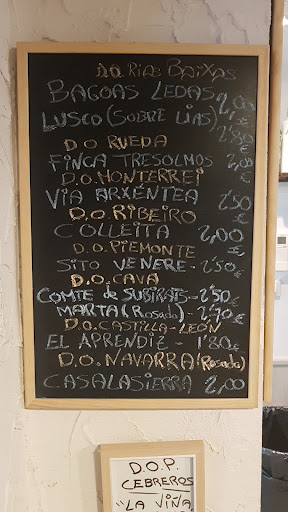 D.O. Rias Baixas
BAGOAS LEDAS 2,00
LUSCO (SOBRE LIAS) 2'80 €
D.O RUEDA
FINCA TRESOLMOS 2,00 €
D.O. MONTERREI
VIA ARXÉNTEA 2'50 €
D.O. RIBEIRO
COLLEITA 2,00 €
D.O. PIEMONTE
SITO VENERE - 2'50 €
D.O. CAVA
COMTE de SUBIRATS - 2'50 €
MARTA (Rosado) - 2'70 €
D.O. CASTILLA-LEÓN
EL APRENDIZ - 1'80 €
D.O. NAVARRA (Rosado)
CASALASIERRA 2,00
D.O.P.
CEBREROS
"LA VIÑA